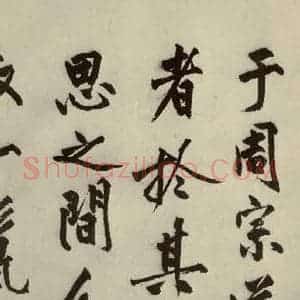 于周宗
者於其
思之間
一氣
Shufaziliao.com